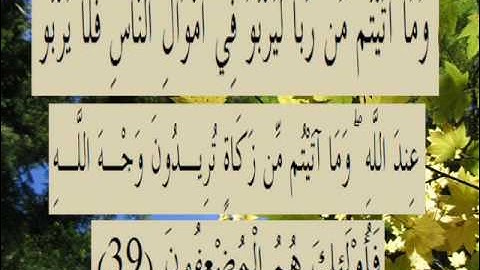 وَمَا آتَيْتُم مِّن رِّبًا لِّيَرْبُوَ فِي أَمْوَالِ النَّاسِ فَلَا يَرْبُو
عِندَ اللَّهِ ۖ وَمَا آتَيْتُم مِّن زَكَاةٍ تُرِيدُونَ وَجْهَ اللَّهِ
فَأُولَٰئِكَ هُمُ الْمُضْعِفُونَ (39)